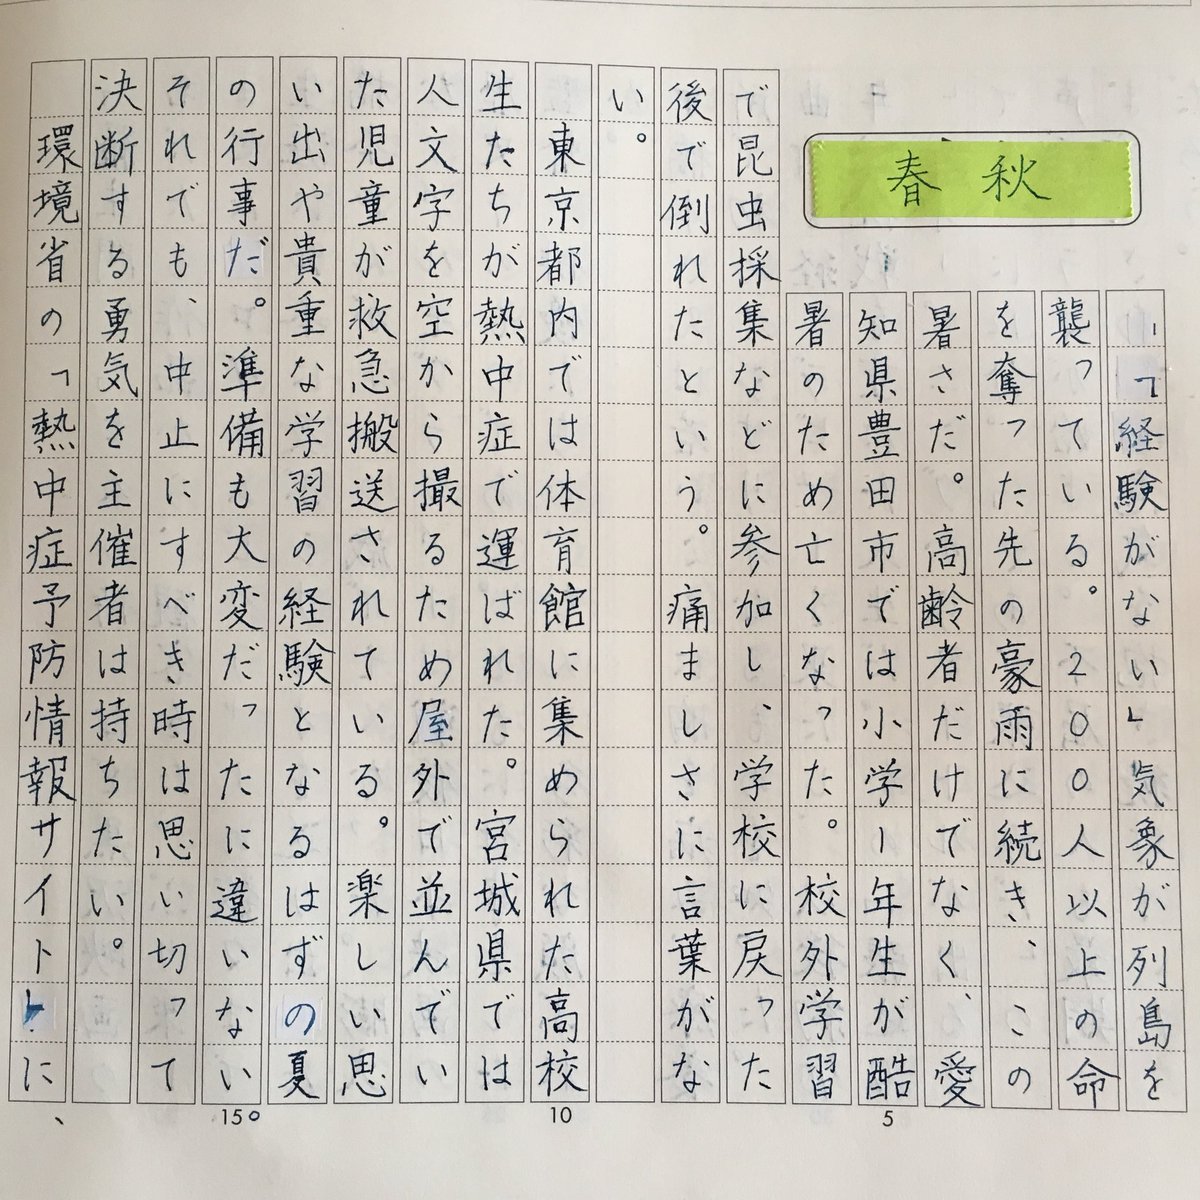 春秋
「「経験がない」気象が列島を
襲っている。200人以上の命
を奪った先の豪雨に続き、この
暑さだ。高齢者だけでなく、愛
知県豊田市では小学1年生が酷
暑のため亡くなった。校外学習
で昆虫採集などに参加し、学校に戻った
後で倒れたという。痛ましさに言葉がな
い。
東京都内では体育館に集められた高校
生たちが熱中症で運ばれた。宮城県では
人文字を空から撮るため屋外で並んでい
た児童が救急搬送されている。楽しい思
い出や貴重な学習の経験となるはずの夏
の行事だ。準備も大変だったに違いない。
それでも、中止にすべき時は思い切って
決断する勇気を主催者は持ちたい。
環境省の「熱中症予防情報サイトに、
5
10
15